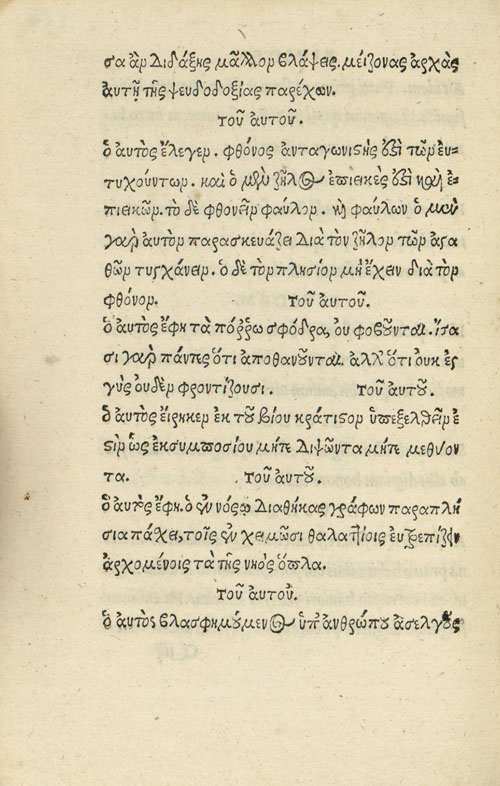 σα ἂν διδάξης μᾶλλον βλάψεις. μείζονας ἀρχὰς
αυτῆ τῆς ψευδοδοξίας παρέχων.
τοῦ ἀυτοῦ.
ὁ αυτὸς ἔλεγεν. φθόνος ἀνταγωνιστής ἐστι τῶν ἐυ-
τυχούντων. καὶ ὁ μὲν ζῆλος ἐπιεικές ἐστι καὶ ἐ-
πιεικῶν. τὸ δὲ φθονεῖν φαύλον. καὶ φαύλων ὁ μὲν
γὰρ ἁυτὸν παρασκευάζει διὰ τὸν ζῆλον τῶν ἀγα
θῶν τυγχάνειν. ὁ δὲ τὸν πλησίον μὴ ἔχειν διὰ τὸν
φθόνον. τοῦ ἀυτοῦ.
ὁ ἀυτὸς ἔφη τὰ πόῤῥω σφόδρα, ὀυ φοβοῦνται. ἴσα
σι γὰρ πάντες ὅτι ἀποθανοῦνται. ἀλλ' ὅτι ὀυκ ἐγ
γὺς ὀυδὲν φροντίζουσι. τοῦ ἀυτοῦ.
ὁ ἀυτὸς ἔιρηκεν ἐκ τοῦ βίου κράτιστον ὑπεξελθεῖν ἐ
στὶν ὡς ἐκ συμποσίου μήτε διψῶντα μήτε μεθύον
τα. τοῦ ἀυτοῦ.
ὁ ἀυτὸς ἔφη. ὁ ἐν νόσῳ διαθήκας γράφων παραπλή
σια πάσχει, τοῖς ἐν χειμῶσι θαλαττίοις ἐυτρεπίζειν
ἀρχομένοις τὰ τῆς νηὸς ὅπλα.
τοῦ ἀυτοῦ.
ὁ ἀυτὸς βλασφημούμενος ὑπ' ἀνθρώπου ἀσελγοῦς